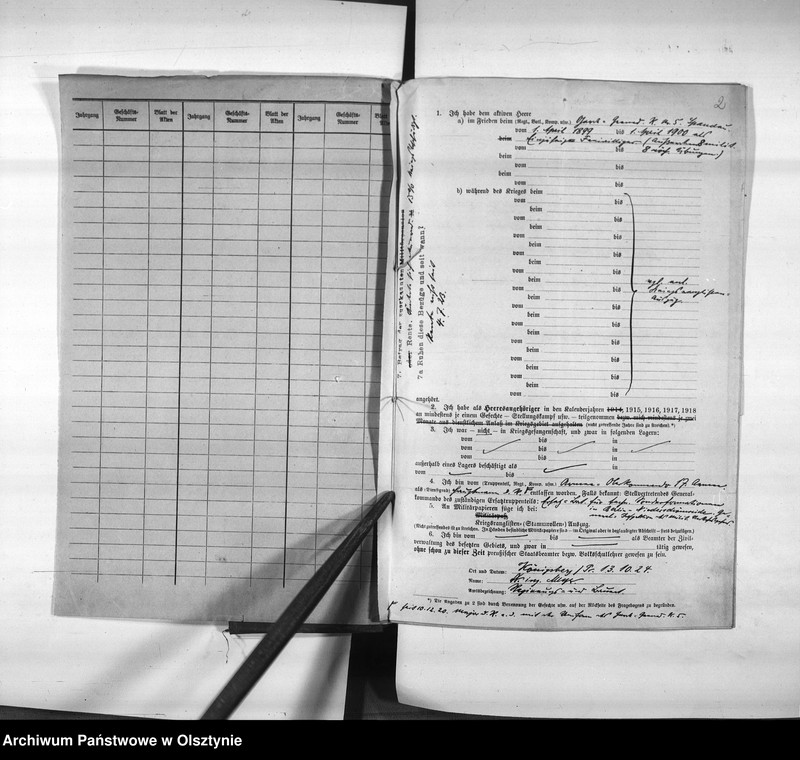 Jahrgang Geschäfts-Nummer Blatt der Akten Jahrgang Geschäfts-Nummer Blatt der Akten Jahrgang Geschäfts-Nummer Blatt
2
1. Ich habe dem aktiven Heere
a) im Frieden beim (Regt., Batl., Komp. usw.) Garde-Grend. R. No 5. Spandau.
vom 1. April 1899 bis 1. April 1900 als
beim Einjährig Freiwilliger
vom bis 8 Übungen)
beim
vom bis
beim
vom bis
b) während des Krieges beim
vom bis
beim
vom bis
beim
vom bis
beim
vom bis
beim
vom bis
beim
vom bis
beim
vom bis
beim
vom bis
beim
vom bis
beim
vom bis
beim
vom bis
beim
vom bis
Kriegsranglisten-
Auszüge
angehört.
2. Ich habe als Heeresangehöriger in den Kalenderjahren 1914, 1915, 1916, 1917, 1918
an mindestens je einem Gefechte – Stellungskampf usw. – teilgenommen bezw. mich mindestens je zwei
Monate aus dienstlichem Anlaß im Kriegsgebiet aufgehalten (nicht zutreffende Jahre sind zu streichen). *)
3. Ich war – nicht – in Kriegsgefangenschaft, und zwar in folgenden Lagern:
vom bis in
vom bis in
vom bis in
außerhalb eines Lagers beschäftigt als
vom bis
4. Ich bin vom (Truppenteil, Regt., Komm. usw.) Armee-Oberkommando 17. Armee
als (Dienstgrad) Hauptmann d. R. entlassen worden. Falls bekannt: Stellvertretendes General-
kommando des zuständigen Ersatztruppenteils:
5. An Militärpapieren füge ich bei:
Militärpaß
Kriegsranglisten- (Stammrollen-) Auszug.
(Nicht zutreffendes ist zu streichen. In Händen befindliche Militärpapiere sind – im Original oder in beglaubigter Abschrift – stets beizufügen.)
6. Ich bin vom bis als Beamter der Zivil-
verwaltung des besetzten Gebiets, und zwar in tätig gewesen,
ohne schon zu dieser Zeit preußischer Staatsbeamter bezw. Volksschullehrer gewesen zu sein.
Ort und Datum: Königsberg / Pr. 13. 10. 24.
Name: Meyer
Amtsbezeichnung: Regierungs- und Baurat
*) Die Angaben zu 2 sind durch Benennung der Gefechte usw. auf der Rückseite des Fragebogens zu begründen.
seit 10.12.20. Major d. R. a. D. mit der Uniform des Garde-Grend. R. 5.
7a Ruhen diese Bezüge und seit wann?
Rente ruht seit
4. 7. 23.
Archiwum Państwowe w Olsztynie